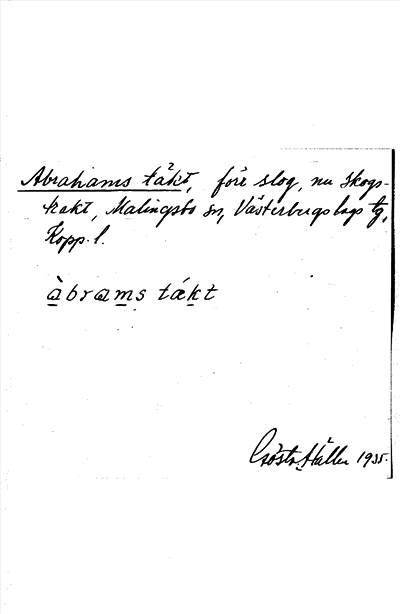 Abrahams täkt, förr slog, nu skogs-
trakt, Malingsbo sn, Västerbergslags tg,
Kopp. l.
àbrams tákt
Gösta Häller 1935.